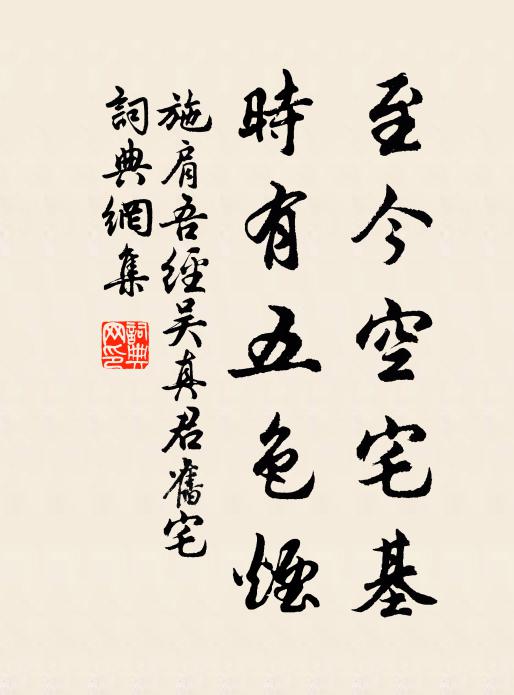 至今空宅基
時有五色煙
施肩吾經吴真君舊宅
詞典網集
詞典網印